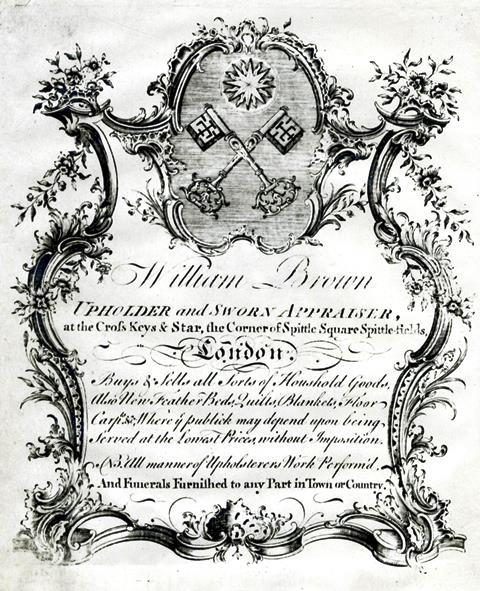 William Brown
UPHOLDER and SWORN APPRAISER,
at the Croſs Keys & Star, the Corner of Spittle Square Spittle-fields,
London.
Buys & Sells all Sorts of Houshold Goods,
Also New Feather Beds, Quilts, Blankets, Floor
Carpts. &c. Where ye publick may depend upon being
Served at the Lowest Prices, without Imposition.
NB. All manner of Upholsterers Work Perform'd.
And Funerals Furnished to any Part in Town or Country.